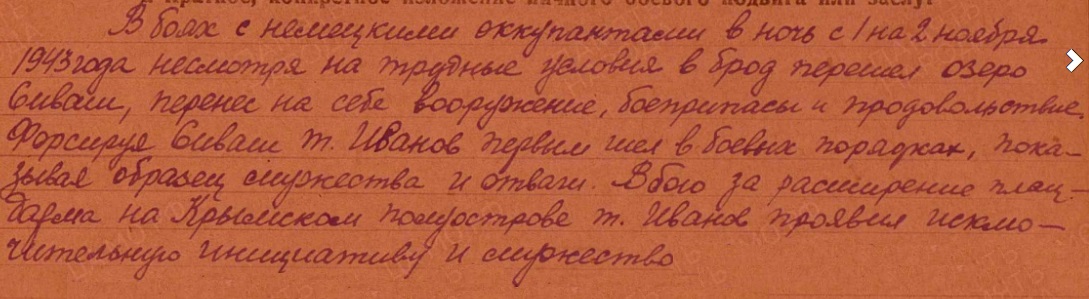 и краткое, конкретное изложение личного боевого подвига или заслуг
В боях с немецкими оккупантами в ночь с 1 на 2 ноября
1943 года несмотря на трудные условия в брод перешел озеро
Сиваш, перенес на себе вооружение, боеприпасы и продовольствие.
Форсируя Сиваш т. Иванов первым шел в боевых порядках, пока-
зывая образец мужества и отваги. В бою за расширение плац-
дарма на Крымском полуострове т. Иванов проявил исклю-
чительную инициативу и мужество